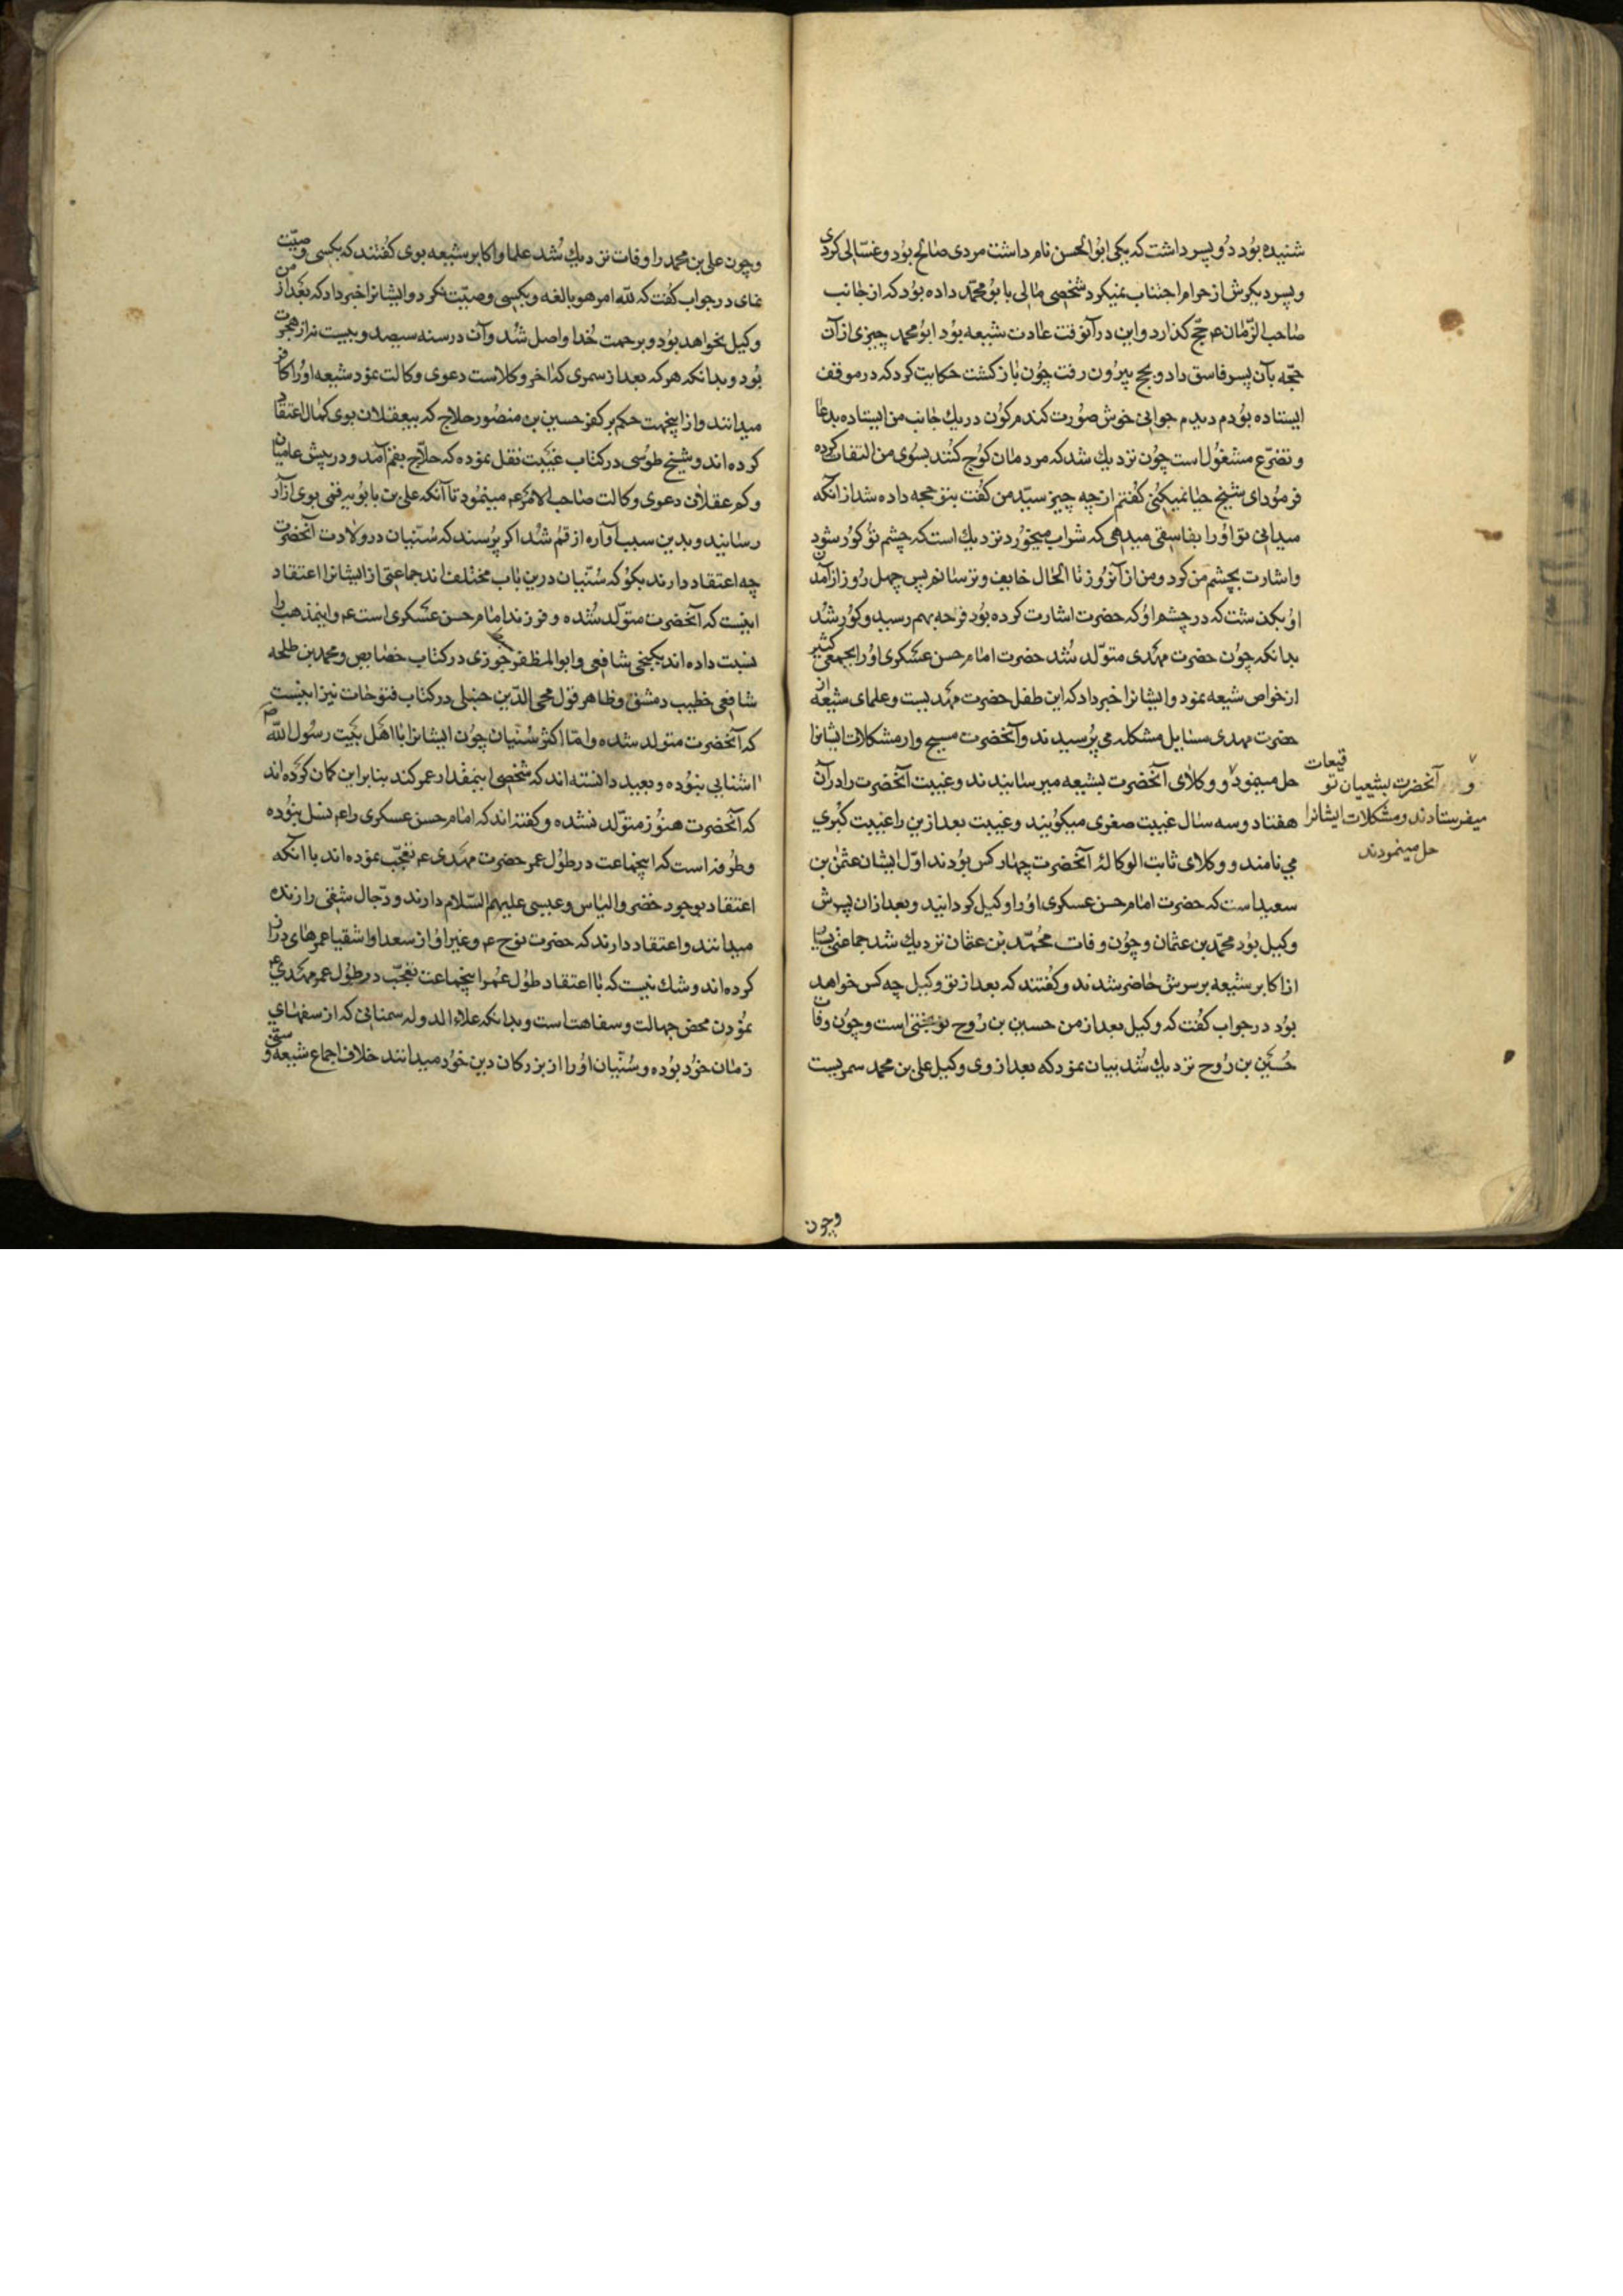 شنیده بود دو پسر داشت که یکی ابوالحسن نام داشت مردی صالح بود و غسالی کردی
و پسر دیکرش از حرام اجتناب نمیکرد شخصی مالی بابو محمد داده بود که از جانب
صاحب الزمان عم حج کذارد و این در آنوقت عادت شیعه بود ابو محمد چیزی از آن
حجه بآن پسر فاسق داد و بحج بیرون رفت چون باز کشت حکایت کرد که در موقف
ایستاده بودم دیدم جوانی خوش صورت کندم کون در یك جانب من ایستاده بدعا
و تضرع مشغول است چون نزدیك شد که مردمان کوچ کنند بسوی من التفات کرده
فرمود ای شیخ حیا نمیکنی کفتم از چه چیز سید من کفت بتو حجه داده شد از آنکه
میدانی تو او را بفاسقی میدهی که شراب میخورد نزدیك است که چشم تو کور شود
و اشارت بچشم من کرد و من از آنروز تا الحال خایف و ترسانم پس چهل روز از آمدن
او نکذشت که در چشم او که حضرت اشارت کرده بود قرحه بهم رسید و کور شد
بدانکه چون حضرت مهدی متولد شد حضرت امام حسن عسکری او را بجمعی کثیر
از خواص شیعه نمود و ایشانرا خبر داد که این طفل حضرت مهدیست و علمای شیعه از
حضرت مهدی مسایل مشکله می پرسیدند و آنحضرت مسیح وار مشکلات ایشانرا
حل مینمود و وکلای آنحضرت بشیعه میرسانیدند و غیبت آنحضرت را در آن
هفتاد و سه سال غیبت صغری میکویند و غیبت بعد ازین را غیبت کبری
می نامند و وکلای ثابت الوکاله آنحضرت چهار کس بودند اول ایشان عثمن بن
سعید است که حضرت امام حسن عسکری او را وکیل کردانید و بعد از ان پسرش
وکیل بود محمد بن عثمان و چون وفات محمد بن عثمان نزدیك شد جماعتی
از اکابر شیعه بر سرش حاضر شدند و کفتند که بعد از تو وکیل چه کس خواهد
بود در جواب کفت که وکیل بعد از من حسین بن روح نوبختی است و چون وفات
حسین بن روح نزدیك شد بیان نمود که بعد از وی وکیل علی بن محمد سمریست
و آنحضرت بشیعیان توقیعات
میفرستادند و مشکلات ایشانرا
حل مینمودند
وچون
وچون علی بن محمد را وفات نزدیك شد علما و اکابر شیعه بوی کفتند که بکسی وصیت
نمای در جواب کفت که لله امر هو بالغه و بکسی وصیت نکرد و ایشانرا خبر داد که بعد از من
وکیل نخواهد بود و برحمت خدا واصل شد و آن در سنه سیصد و بیست نه از هجرت
بود و بدانکه هر که بعد از سمری که اخر وکلاست دعوی وکالت نمود شیعه او را کافر
میدانند و از اینجهت حکم بر کفر حسین بن منصور حلاج که بیعقلان بوی کمال اعتقاد
کرده اند و شیخ طوسی در کتاب غیبت نقل نموده که حلاج بقم آمد و در پیش عامیان
و کم عقلان دعوی وکالت صاحب الامر عم مینمود تا آنکه علی بن بابویه قمی بوی آزار
رسانید و بدین سبب آواره از قم شد اکر پرسند که سنیان در ولادت آنحضرت
چه اعتقاد دارند بکو که سنیان درین باب مختلف اند جماعتی از ایشانرا اعتقاد
اینست که آنحضرت متولد شده و فرزند امام حسن عسکری است عم و اینمذهب را
نسبت داده اند بکنجی شافعی و ابوالمظفر جوزی در کتاب خصایص و محمد بن طلحه
شافعی خطیب دمشق و ظاهر قول محی الدین حنبلی در کتاب فتوحات نیز اینست
که آنحضرت متولد شده و اما اکثر سنیان چون ایشانرا با اهل بیت رسول الله
اشنایی نبوده و بعید دانسته اند که شخصی اینمقدار عمر کند بنابر این کمان کرده اند
که آنحضرت هنوز متولد نشده و کفته اند که امام حسن عسکری را عم نسل نبوده
و طرفه است که اینجماعت در طول عمر حضرت مهدی عم تعجب نموده اند با انکه
اعتقاد بوجود خضر و الیاس و عیسی علیهم السلام دارند و دجال شقی را زنده
میدانند و اعتقاد دارند که حضرت نوح عم و غیر او از سعدا و اشقیا عمرهای دراز
کرده اند و شك نیست که با اعتقاد طول عمر اینجماعت تعجب در طول عمر مهدی عم
نمودن محض جهالت و سفاهت است و بدانکه علاء الدوله سمنانی که از سفهای
زمان خود بوده و سنیان او را از بزرکان دین خود میدانند خلاف اجماع شیعه و سنی